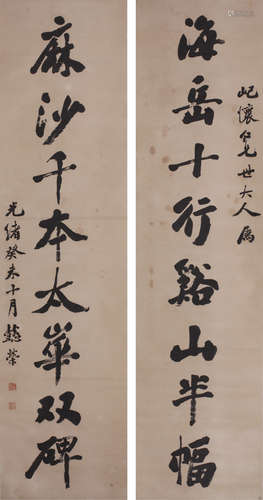 屺懷仁兄世大人属
海岳十行谿山半幅
麻沙千本太華双碑
光緒癸未十月懿榮